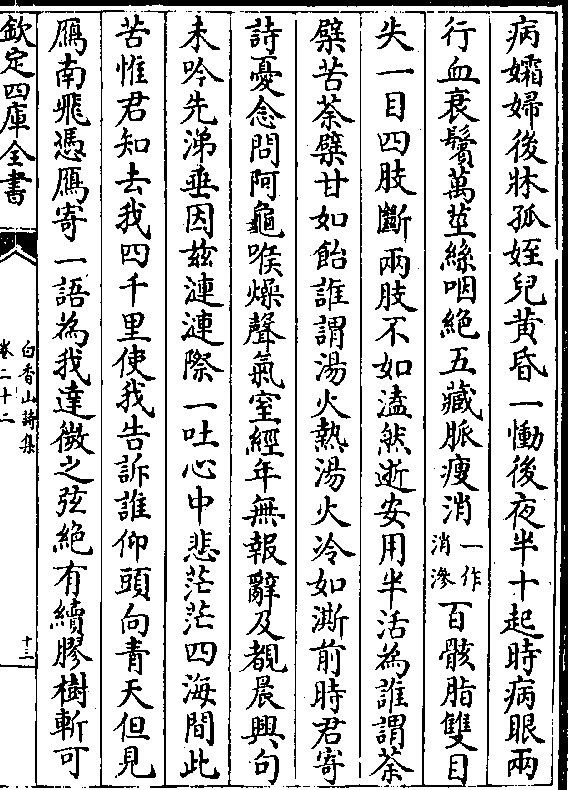 病孀婦後牀孤姪兒黃昏一慟後夜半十起時病眼兩
行血衰鬢萬莖絲咽絶五藏脈瘦消一作消滲百骸脂雙目
失一目四肢斷兩肢不如溘然逝安用半活為誰謂荼
檗苦荼檗甘如飴誰謂湯火熱湯火冷如澌前時君寄
詩憂念問阿龜喉燥聲氣窒經年無報辭及覩晨興句
未吟先涕垂因兹漣漣際一吐心中悲茫茫四海間此
苦惟君知去我四千里使我告訴誰仰頭向青天但見
鴈南飛憑鴈寄一語為我達微之弦絶有續膠樹斬可
欽定四庫全書
白香山詩集
卷二十二
十二